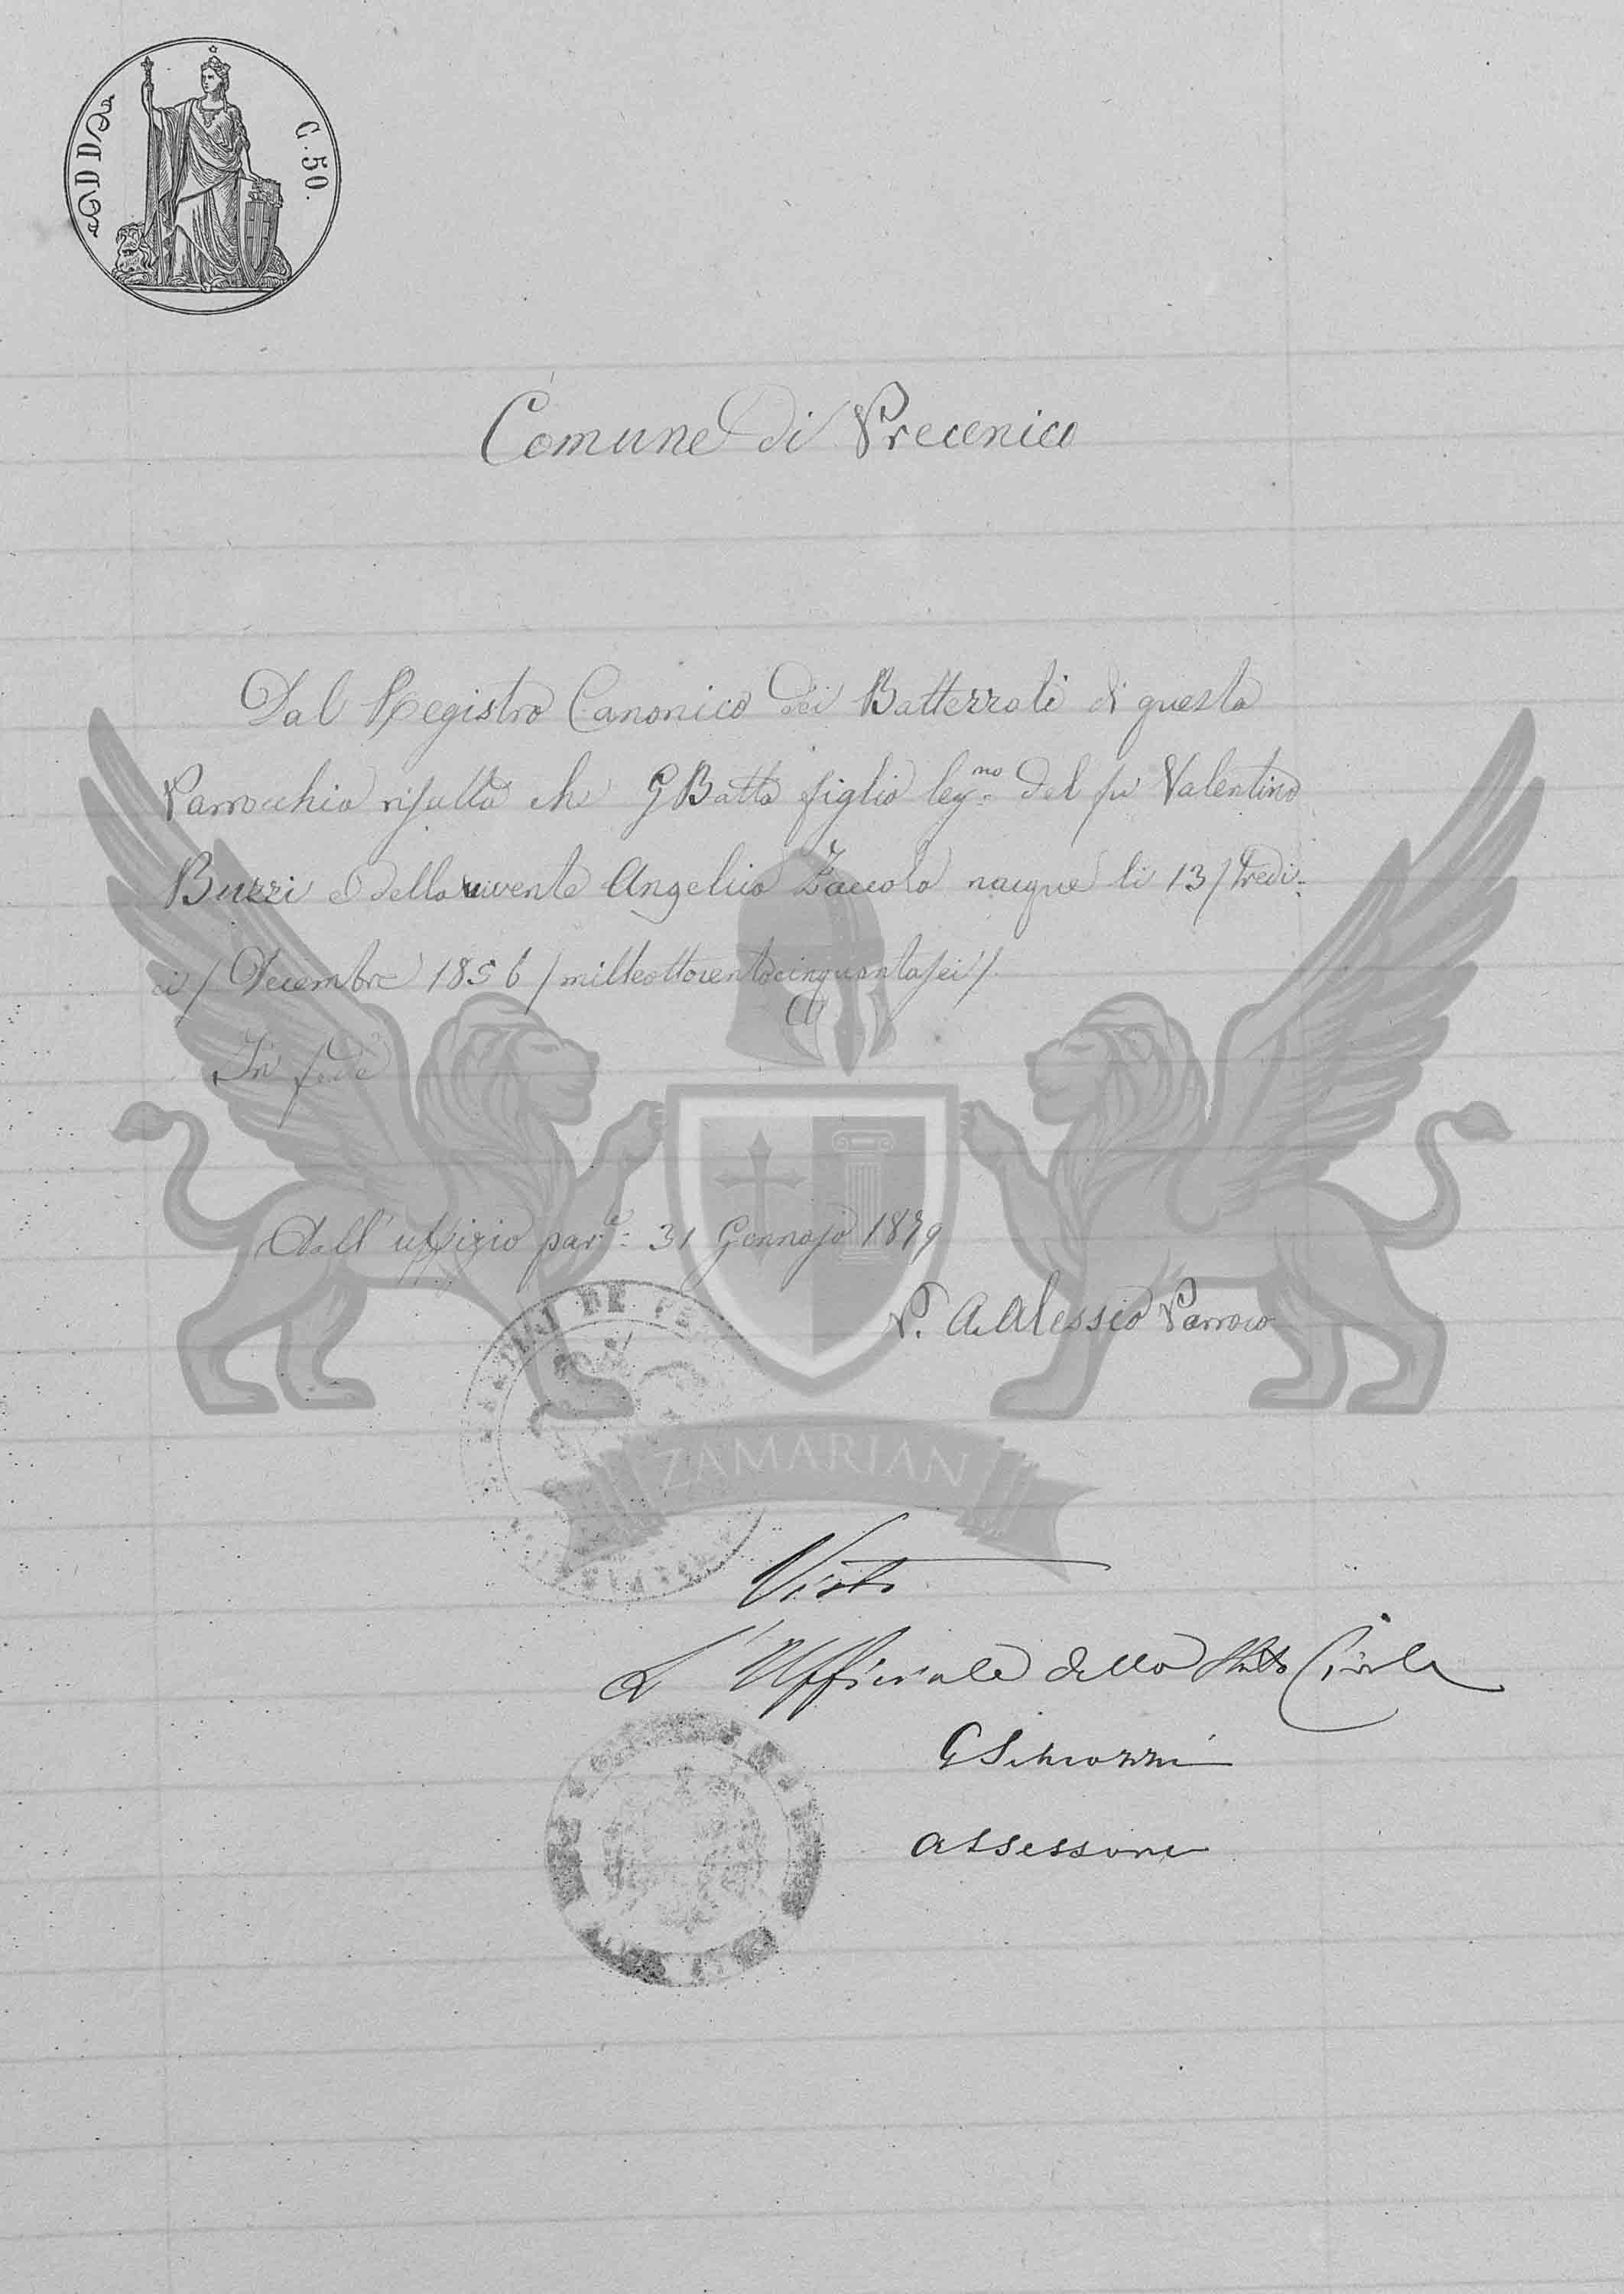 C. 50.
Comune di Precenico
Dal Registro Canonico dei Battezzati di questa
Parrocchia risulta che G Batta figlio leg.mo del fu Valentino
Buzzi e della vivente Angelica Zaccolo nacque li 13/tredi-
ci/ Decembre 1856 /milleottocentocinquantasei/.
In fede
Dall' uffizio par.e 31 Gennajo 1879
P. A. Alessio Parroco
ZAMARIAN
Visto
L' Ufficiale dello Stato Civile
G Schiozzi
assessore